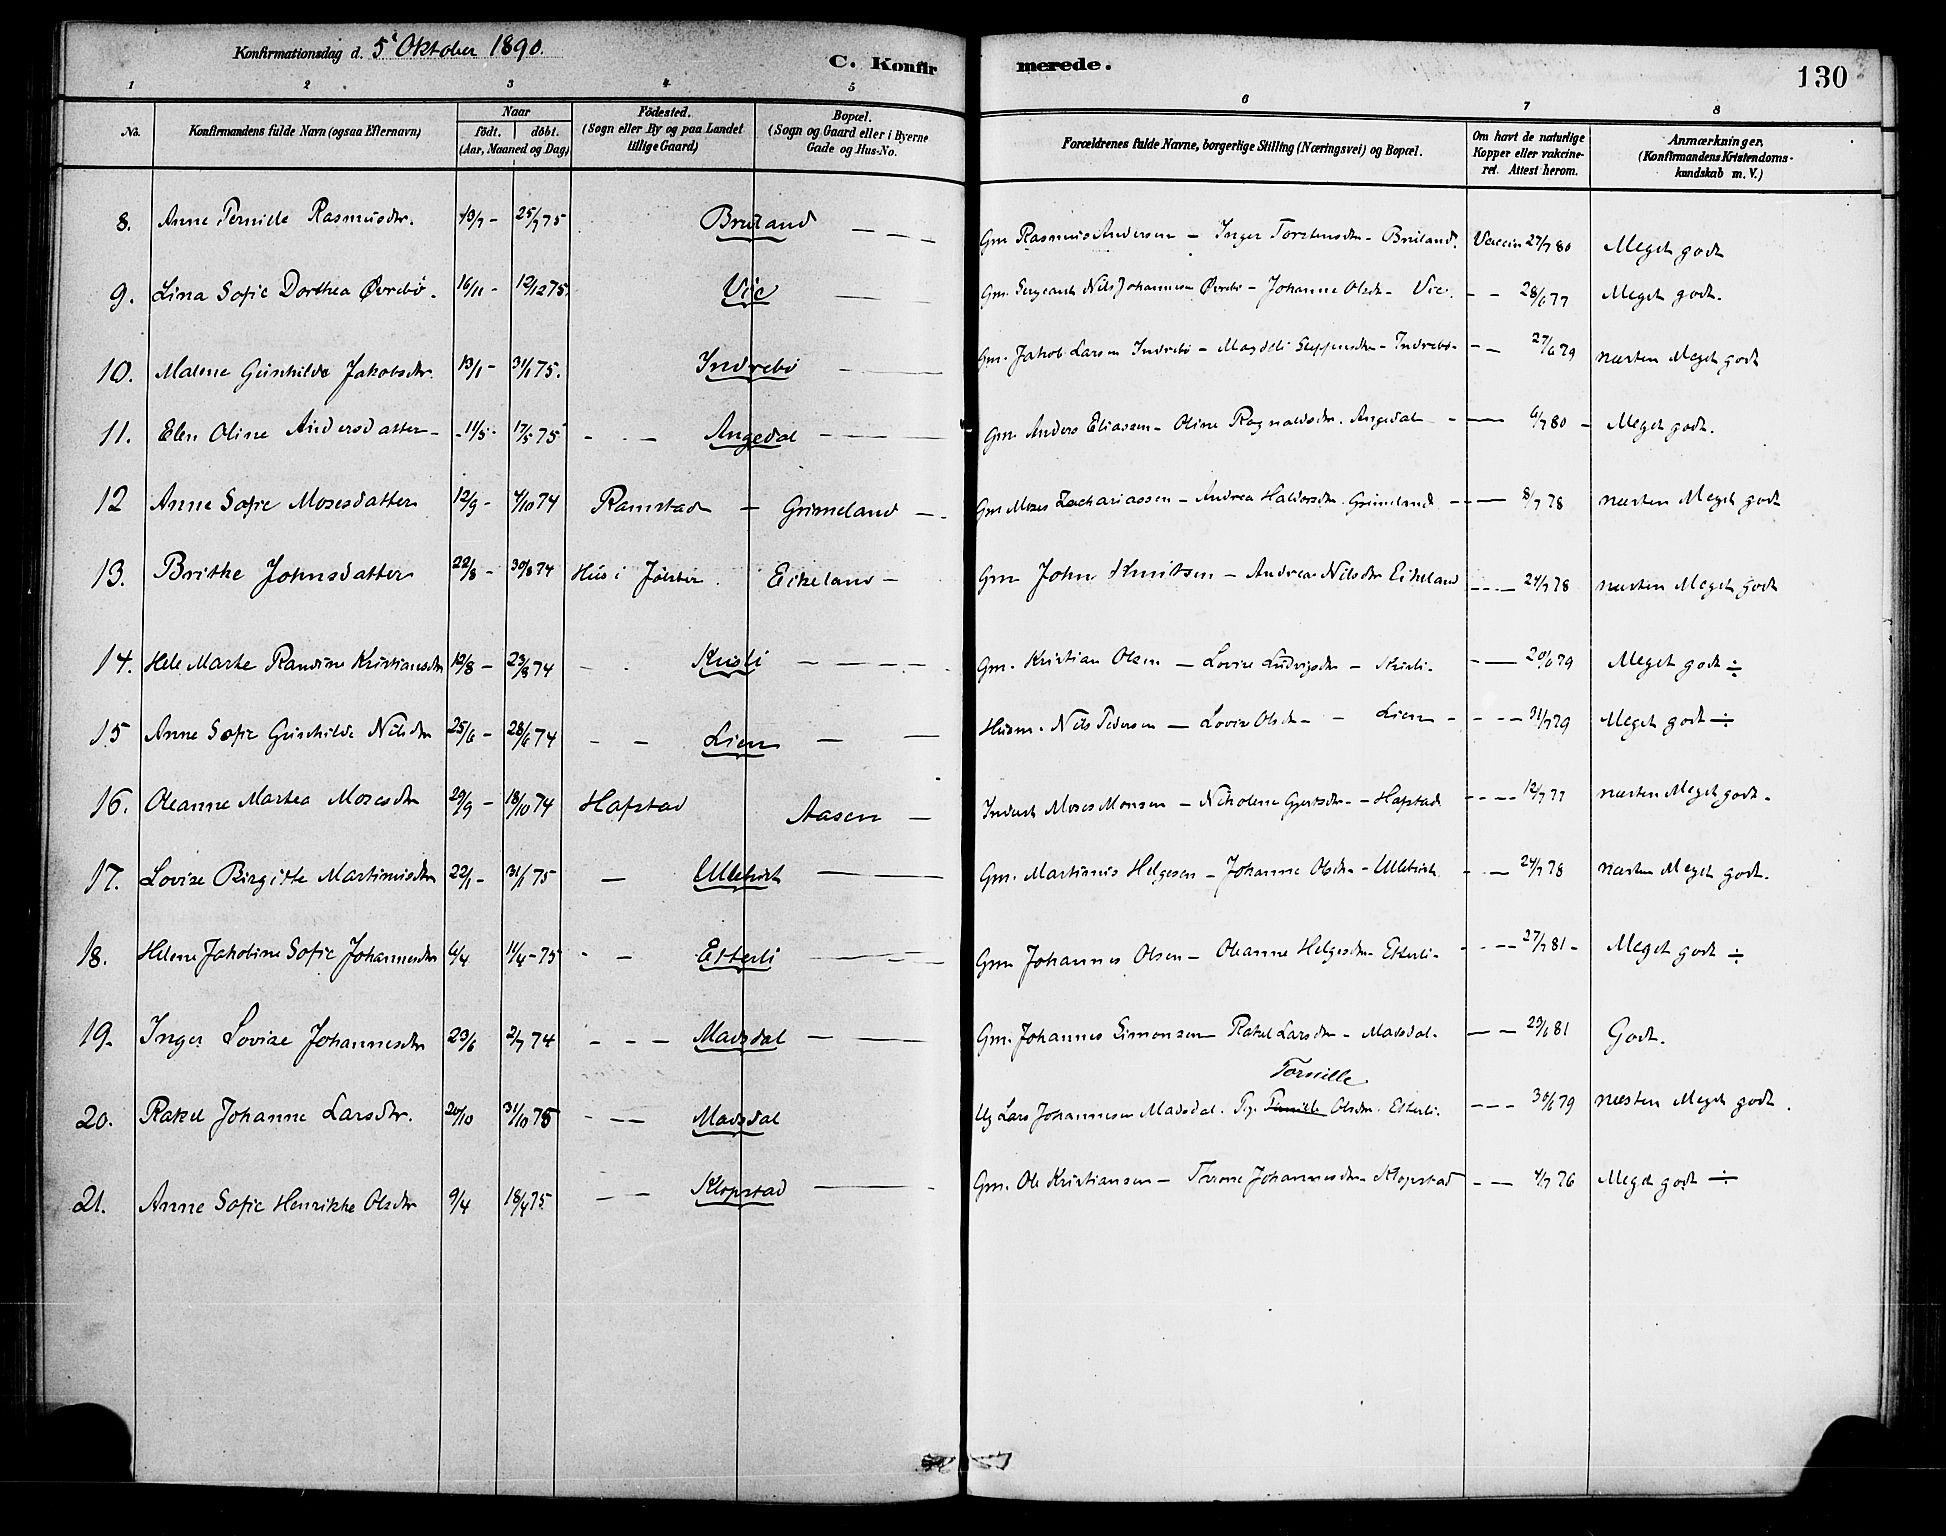 Konfirmationsdag d. 5' Oktober 1890.
C. Konfirmerede.
130
1 2 3 4 5 6 7 8
No.
Konfirmandens fulde Navn (ogsaa Efternavn)
Naar
födt. döbt.
(Aar, Maaned og Dag)
Födested.
(Sogn eller By og paa Landet
tillige Gaard)
Bopæl.
(Sogn og Gaard eller i Byerne
Gade og Hus-No.
Forældrenes fulde Navne, borgerlige Stilling (Næringsvei) og Bopæl.
Om havt de naturlige
Kopper eller vakcine-
ret. Attest herom.
Anmærkninger,
(Konfirmandens Kristendoms-
kundskab m. V.)
8. Anne Pernille Rasmusdtr. 13/7 - 25/7 75 Bruland - - - Gm Rasmus Andersen - Inger Torstensdtr - Bruland. Vaccin 27/7 80 Meget godt
9. Lina Sofie Dorthea Øvrebö. 16/11 - 12/12 75 Vie - - Gm. Sergeant Nils Johannesen Øvrebö - Johanne Olsdtr - Vie. - - 28/6 77 Meget godt.
10. Malene Gunhilde Jakobsdtr. 13/1 - 31/1 75. Indrebö - - - Gm. Jakob Larsen Indrebö - Magdeli Seppensdtr - Indrebö - - - 27/6 79 næsten Meget godt
11. Elen Oline Andersdatter - 11/5 - 17/5 75 - - - Angedal - - - Gm. Anders Eliassen - Oline Ragnaldsdtr. Angedal - - 6/7 80 - Meget godt.
12 Anne Sofie Mosesdatter 12/9 - 4/10 74 Ramstad - Grimeland - Gm. Moses Zachariassen - Andrea Haldorsdtr. Grimeland - - 8/7 78 næsten Meget godt
13. Brithe Johnsdatter 22/8 - 30/8 74 Hus i Jölster. Eikeland - Gm John Knutsen - Andrea Nilsdtr Eikeland - - - 24/7 78 næsten Meget godt
14. Hele Marte Randine Kristiansdtr 19/8 - 23/8 74 - - Kusli - - - - Gm. Kristian Olsen - Lovise Ludvigsdtr - Kusli - - - 20/6 79 Meget godt ÷
15 Anne Sofie Gunhilde Nilsdtr 25/6 - 28/6 74 - - Lien - - Husm. Nils Pedersen - Lovise Olsdtr - - Lien - - - - 31/7 79 Meget godt ÷
16. Oleanne Martea Mosesdtr 29/9 - 18/10 74 Hafstad Aasen - Inderst Moses Monsen - Nikolene Gjertsdtr - Hafstad - - - 12/7 77 næsten Meget godt.
17. Lovise Birgitte Martinusdtr 22/1 - 31/1 75 - Ulletveit - - - Gm. Martinus Helgesen - Johanne Olsdtr - Ulletveit - - - 24/7 78 næsten Meget godt.
18. Helene Jakobine Sofie Johannesdtr 6/4 11/4 - 75 - - Etterli - - - Gm Johannes Olsen - Oleanne Helgesdtr - Etterli - - - - 27/7 81 - Meget godt ÷
19. Inger Lovise Johannesdtr 23/6 2/7 74 - - - Madsdal - - - Gm. Johannes Simonsen - Rakel Larsdtr - Madsdal. - - 29/6 81 Godt.
Tornille
20. Rakel Johanne Larsdtr. 20/10 31/10 75 - - - Madsdal Ug Lars Johannesen Madsdal. Pg. Olsdtr. Etterli. - - - 30/6 79 næsten Meget godt.
21. Anne Sofie Henrikke Olsdtr 9/4 18/4 75 - - - Klopstad - - Gm. Ole Kristiansen - Thrine Johannesdtr - Klopstad - - 4/7 76 Meget godt ÷